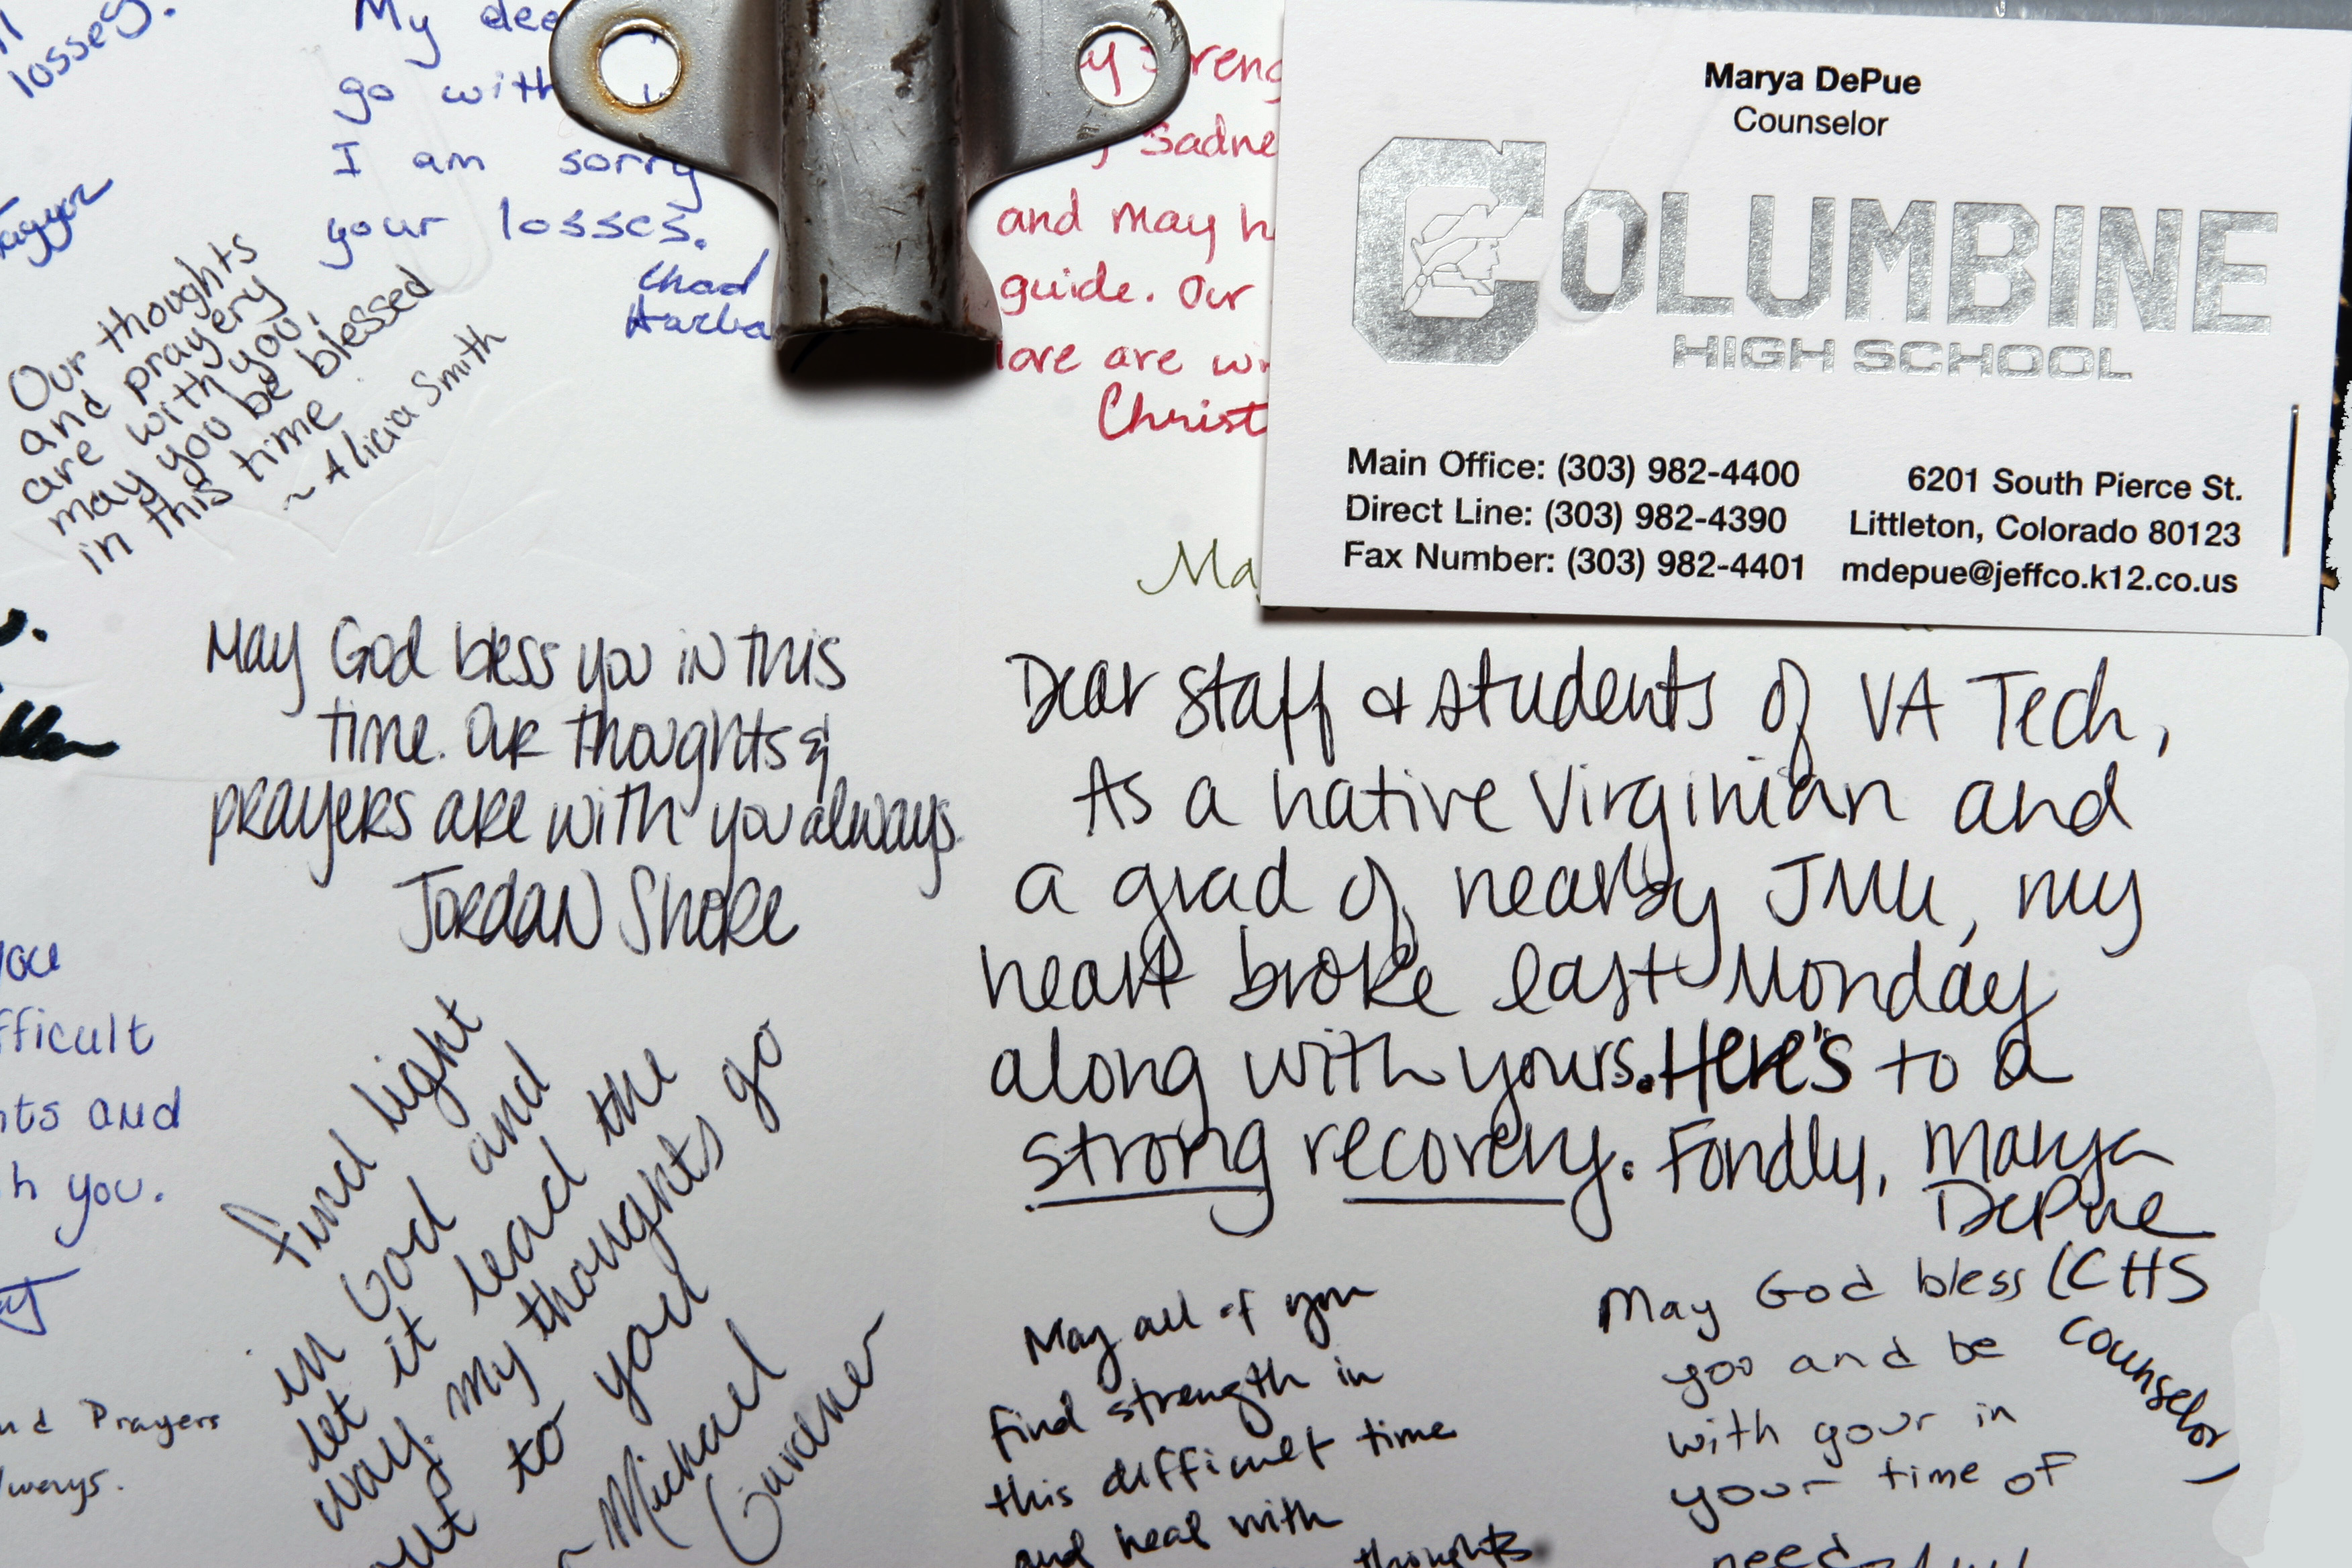 losses.
My dee
go with
I am sorry
your losses.
Chad
Harba
y streng
Sadne
and may h
guide. Our
love are wi
Christ
Our thoughts
and prayers
are with you,
may you be blessed
in this time
~ Alicia Smith
Marya DePue
Counselor
COLUMBINE
HIGH SCHOOL
Main Office: (303) 982-4400
Direct Line: (303) 982-4390
Fax Number: (303) 982-4401
6201 South Pierce St.
Littleton, Colorado 80123
mdepue@jeffco.k12.co.us
Ma
May God bless you in this
time. Our thoughts &
prayers are with you always.
Jordan Shore
Dear staff & students of VA Tech,
As a native Virginian and
a grad of nearby JMU, my
heart broke last Monday
along with yours. Here's to a
strong recovery. Fondly, Marya
DePue
(CHS
counselor)
you
fficult
nts and
h you.
nd Prayers
lways.
find light
in God and
let it lead the
way. my thoughts go
out to you
~ Michael
Gardner
May all of you
find strength in
this difficult time
and heal with
thoughts
May God bless
you and be
with your in
your time of
need